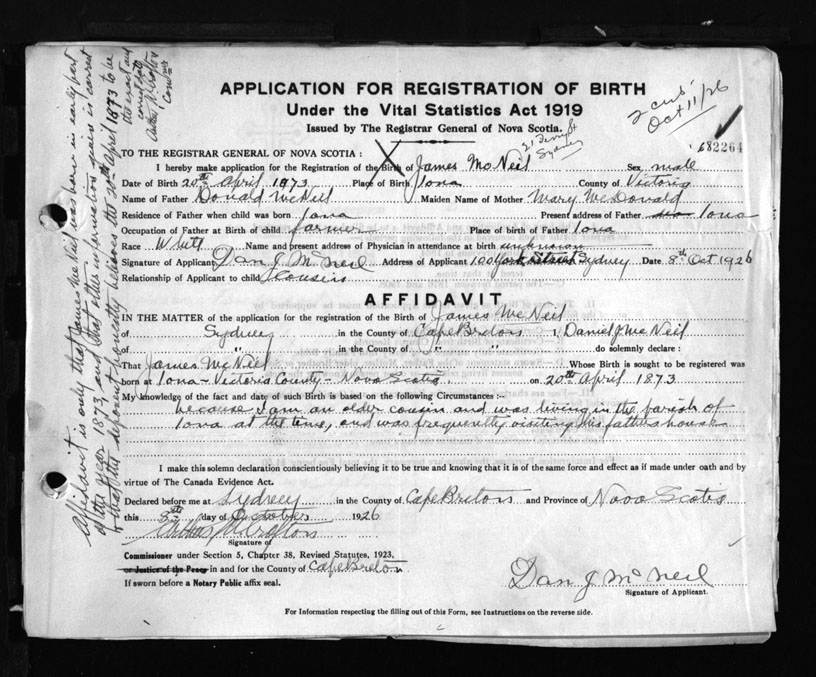 APPLICATION FOR REGISTRATION OF BIRTH
Under the Vital Statistics Act 1919
Issued by The Registrar General of Nova Scotia.
Oct 11/26
682264
Sydney
TO THE REGISTRAR GENERAL OF NOVA SCOTIA:
I hereby make application for the Registration of the Birth of James McNeil Sex male
Date of Birth 20th April 1873 Place of Birth Iona County of Victoria
Name of Father Donald McNeil Maiden Name of Mother Mary McDonald
Residence of Father when child was born Iona Present address of Father Iona
Occupation of Father at Birth of child farmer Place of birth of Father Iona
Race White Name and present address of Physician in attendance at birth unknown
Signature of Applicant Dan J McNeil Address of Applicant 100 York Street Sydney Date 8th Oct 1926
Relationship of Applicant to child Cousin
AFFIDAVIT
IN THE MATTER of the application for the registration of the Birth of James McNeil
of Sydney in the County of Cape Breton I, Daniel J McNeil
of " in the County of " " do solemnly declare:
That James McNeil Whose Birth is sought to be registered was
born at Iona - Victoria County - Nova Scotia. on 20th April 1873
My knowledge of the fact and date of such Birth is based on the following Circumstances:-
because I am an older cousin and was living in the parish of
Iona at the time, and was frequently visiting his fathers house
I make this solemn declaration conscientiously believing it to be true and knowing that it is of the same force and effect as if made under oath and by
virtue of The Canada Evidence Act.
Declared before me at Sydney in the County of Cape Breton and Province of Nova Scotia
this 8th day of October 1926
Signature of
Commissioner under Section 5, Chapter 38, Revised Statutes, 1923,
or Justice of the Peace in and for the County of Cape Breton
If sworn before a Notary Public affix seal.
Dan J McNeil
Signature of Applicant.
For Information respecting the filling out of this Form, see Instructions on the reverse side.
Affidavit is only that James McNeil was born in early part
of the year 1873, and that other information given is correct
& that the deponent honestly believes the 20th April 1873 to be
the exact and
correct date